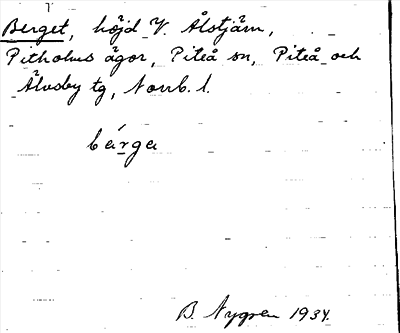 Berget, höjd V. Ålstjärn,
Pitholms ägor, Piteå sn, Piteå och
Älvsby tg, Norrb. l.
bárga
B. Nygren 1934.